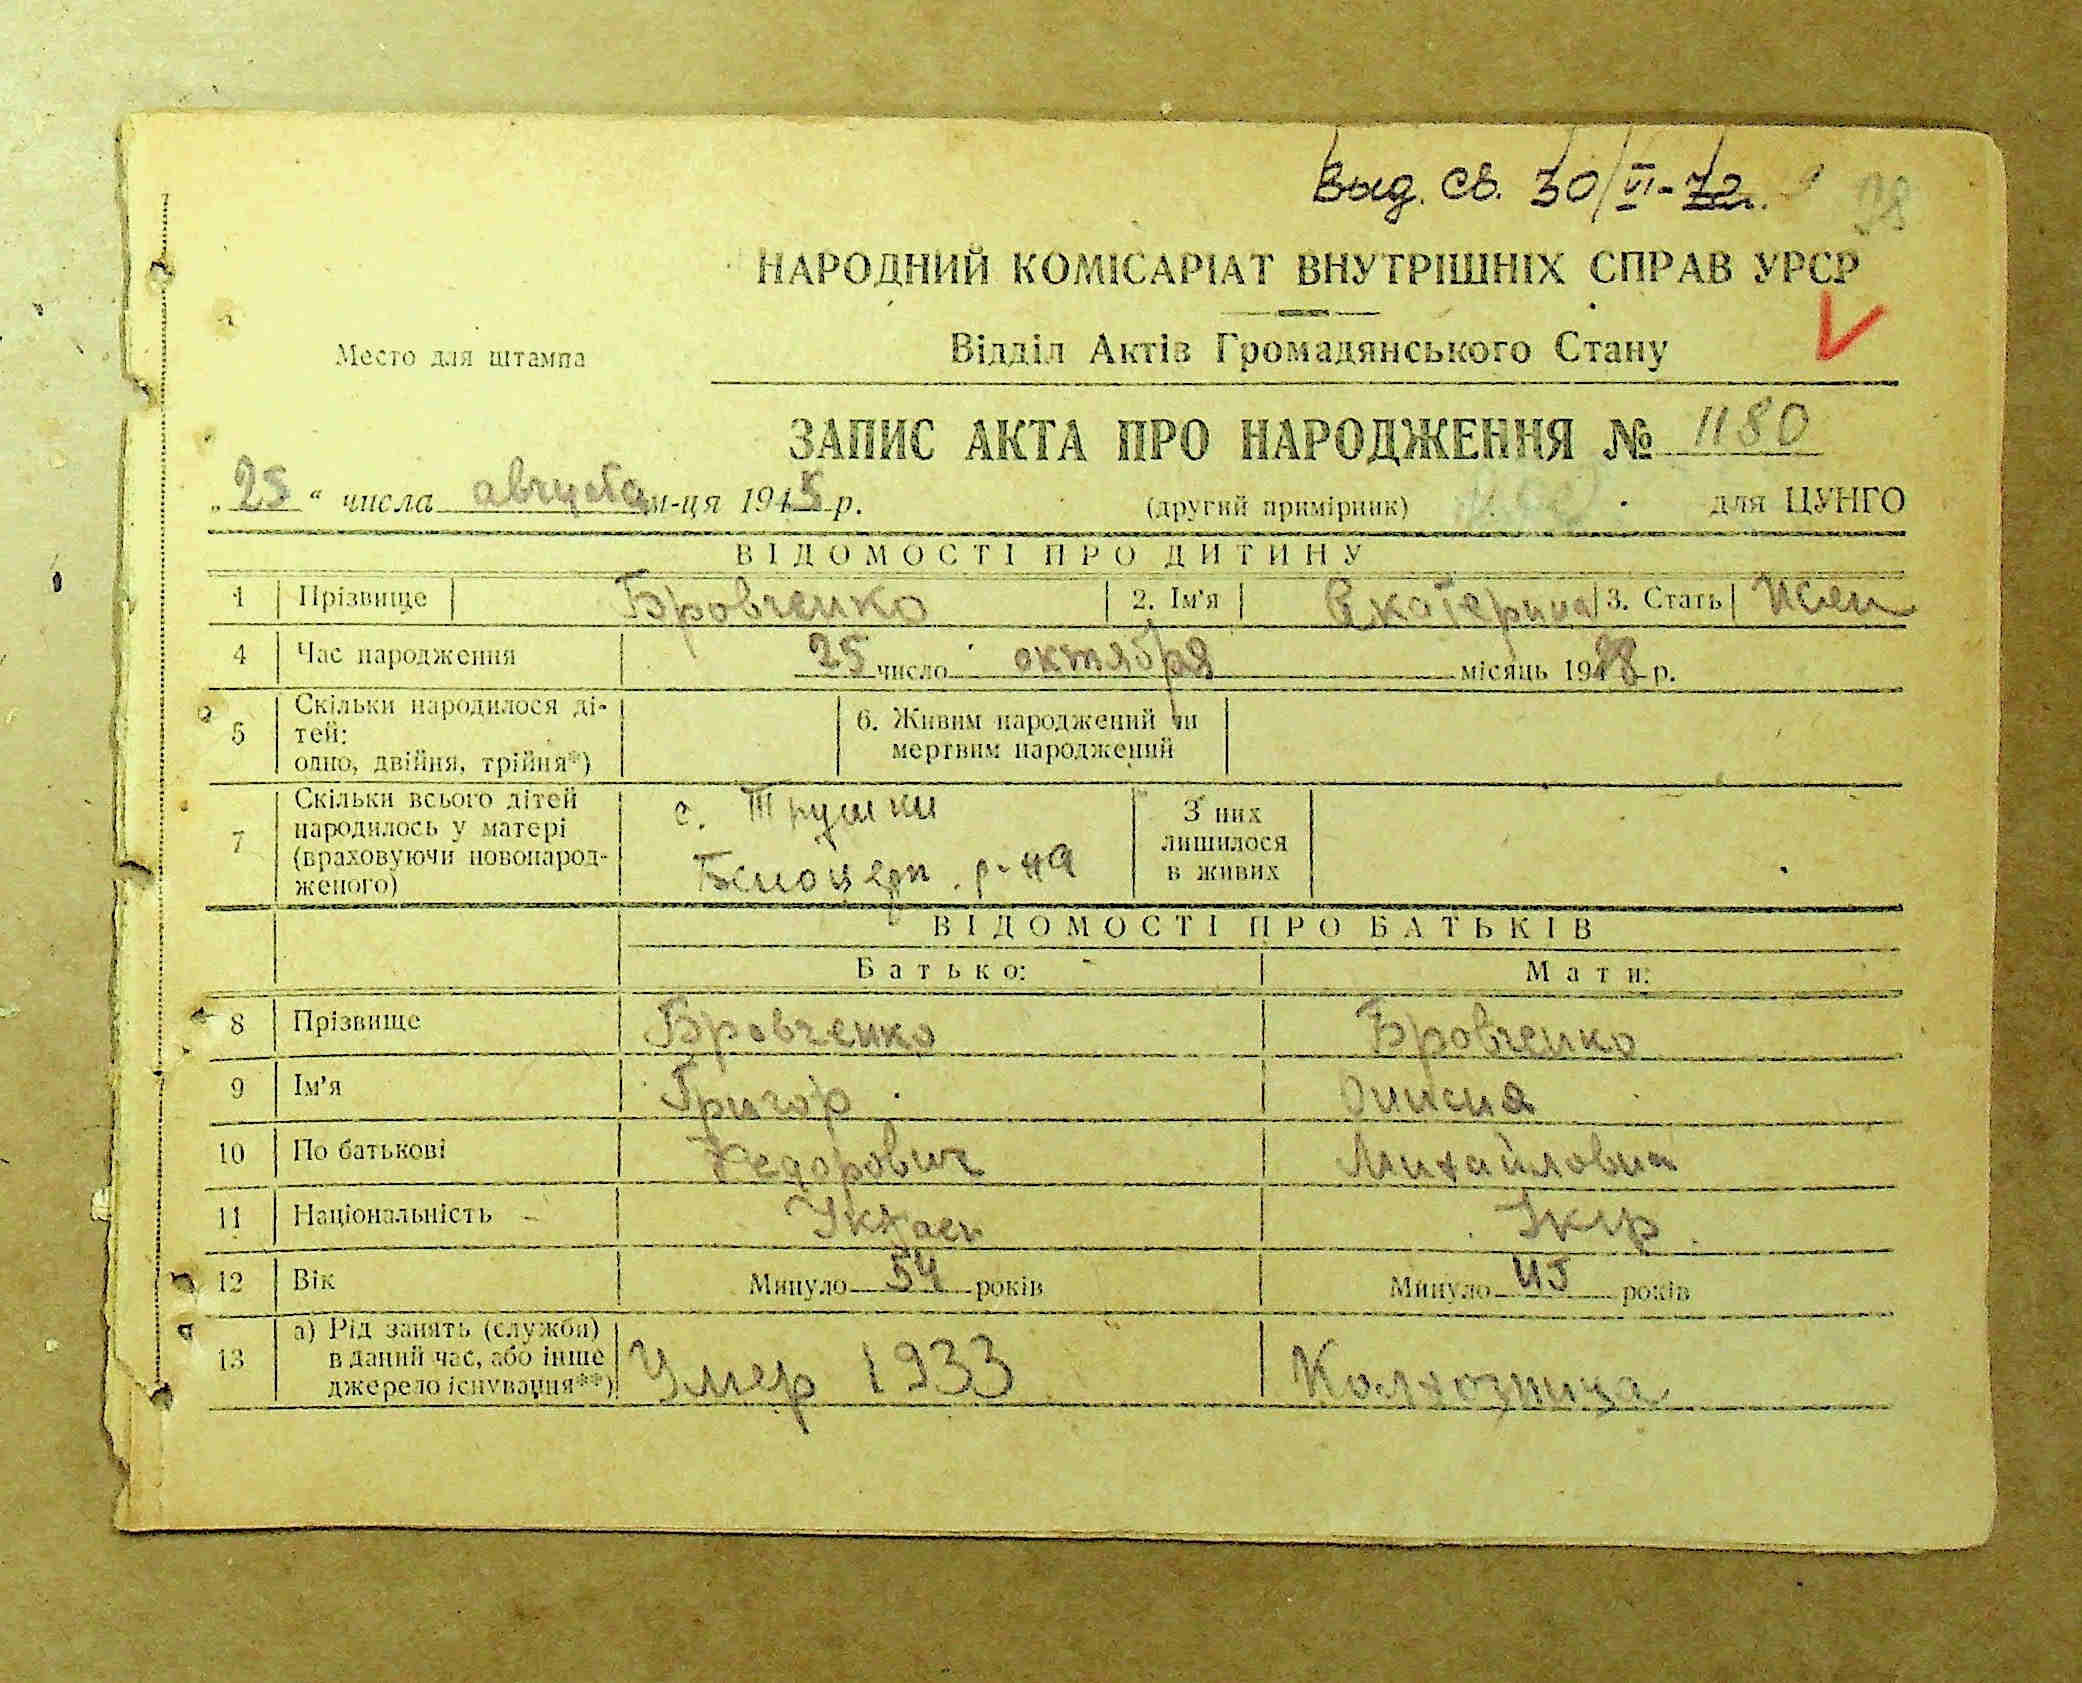 Выд. св. 30/VI-72г. 98
НАРОДНИЙ КОМІСАРІАТ ВНУТРІШНІХ СПРАВ УРСР
Место для штампа
Відділ Актів Громадянського Стану
ЗАПИС АКТА ПРО НАРОДЖЕННЯ № 1180
„25“ числа августа м-ця 1945 р. (другий примірник) для ЦУНГО
ВІДОМОСТІ ПРО ДИТИНУ
1 Прізвище Бровченко 2. Ім'я Екатерина 3. Стать Жен
4 Час народження 25 число октября місяць 19 р.
5 Скільки народилося ді-
тей:
одно, двійня, трійня*)
6. Живим народжений чи
мертвим народжений
7 Скільки всього дітей
народилось у матері
(враховуючи новонарод-
женого)
с. Трушки
Белоцерк. р-на
З них
лишилося
в живих
ВІДОМОСТІ ПРО БАТЬКІВ
Батько: Мати:
8 Прізвище Бровченко Бровченко
9 Ім'я Григор
10 По батькові Федорович Михайловна
11 Національність Украен Укр.
12 Вік Минуло 54 років Минуло 45 років
13 а) Рід занять (служби)
в даний час, або інше
джерело існування**)
Умер 1933 Колхозница